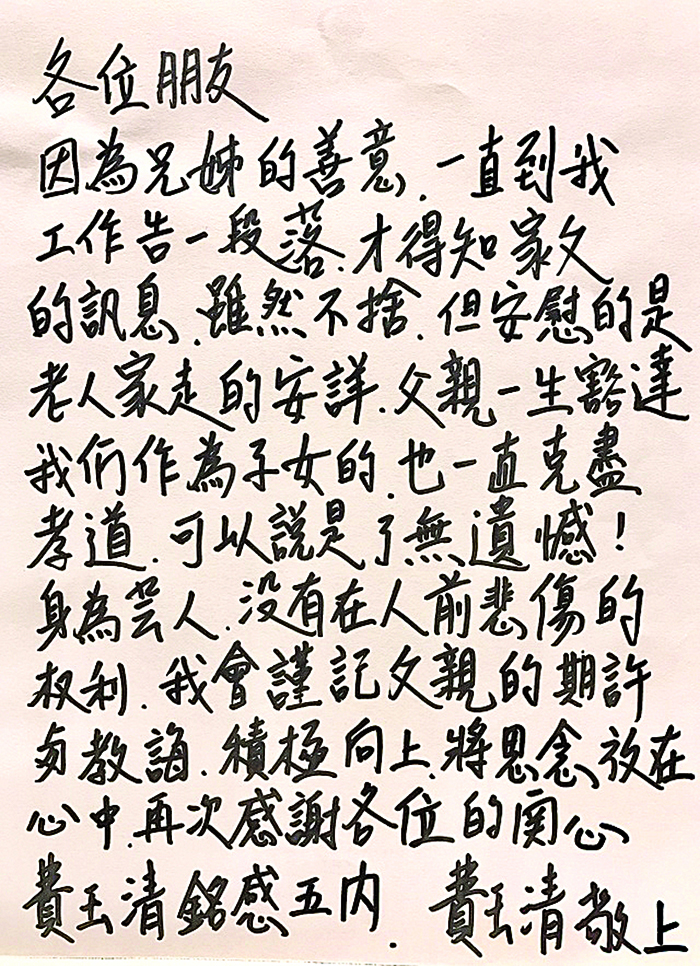 各位朋友
因為兄姊的善意.一直到我
工作告一段落.才得知家父
的訊息.雖然不捨.但安慰的是
老人家走的安詳.父親一生豁達
我們作為子女的.也一直克盡
孝道.可以說是了無遺憾!
身為芸人.沒有在人前悲傷的
权利.我會謹記父親的期許
与教誨.積極向上.將思念放在
心中.再次感謝各位的関心
費玉清銘感五內. 費玉清敬上